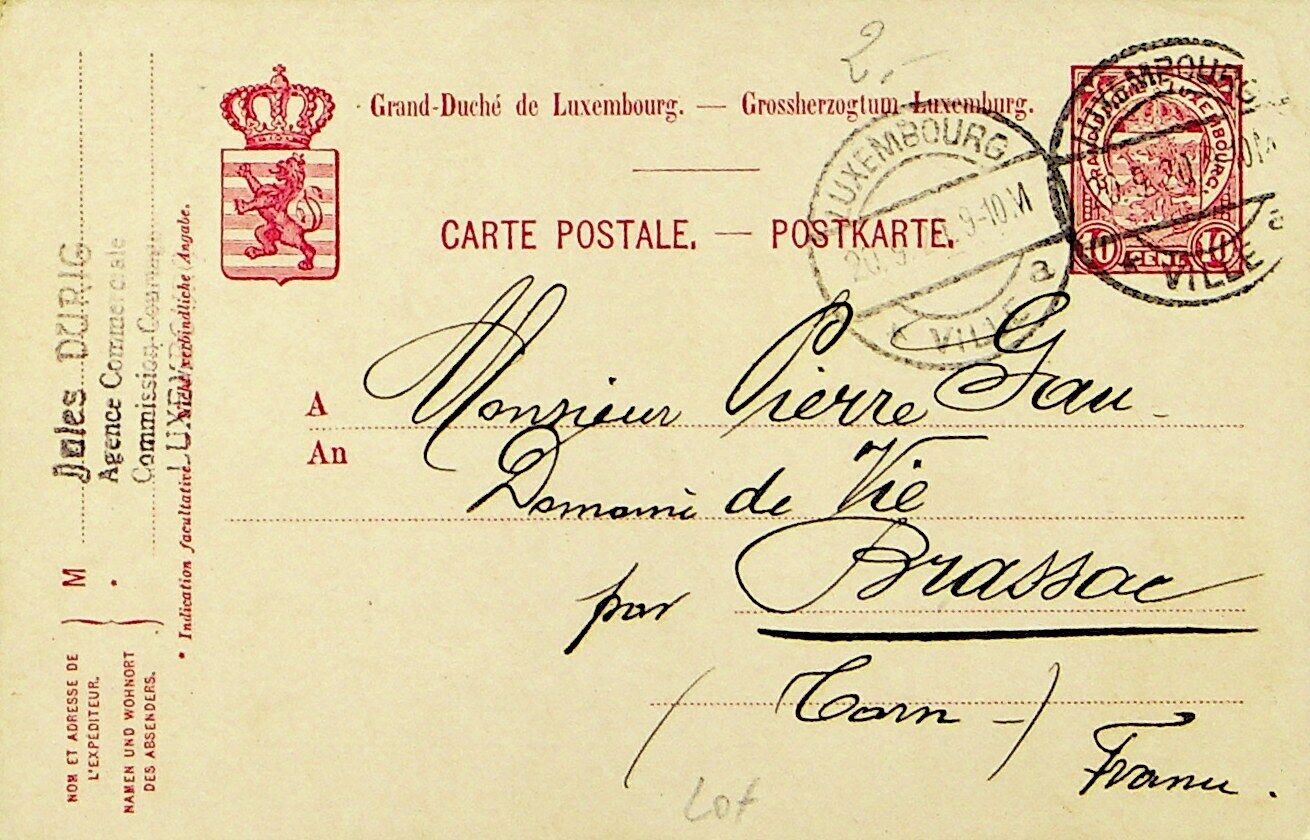 2.-
Grand-Duché de Luxembourg. — Grossherzogtum Luxemburg.
CARTE POSTALE. — POSTKARTE.
LUXEMBOURG
9-10 M
a
VILLE
LUXEMBOURG
a
VILLE
GRAND DUCHÉ DE LUXEMBOURG.
10 CENT. 10
A Monsieur Pierre Gau -
An
Domaine de Vié
par Brassac
( Tarn - )
France.
Lot
Jules DURIG
Agence Commerciale
* Indication facultative. Nicht verbindliche Angabe.
M *
NOM ET ADRESSE DE
L'EXPÉDITEUR.
NAMEN UND WOHNORT
DES ABSENDERS.